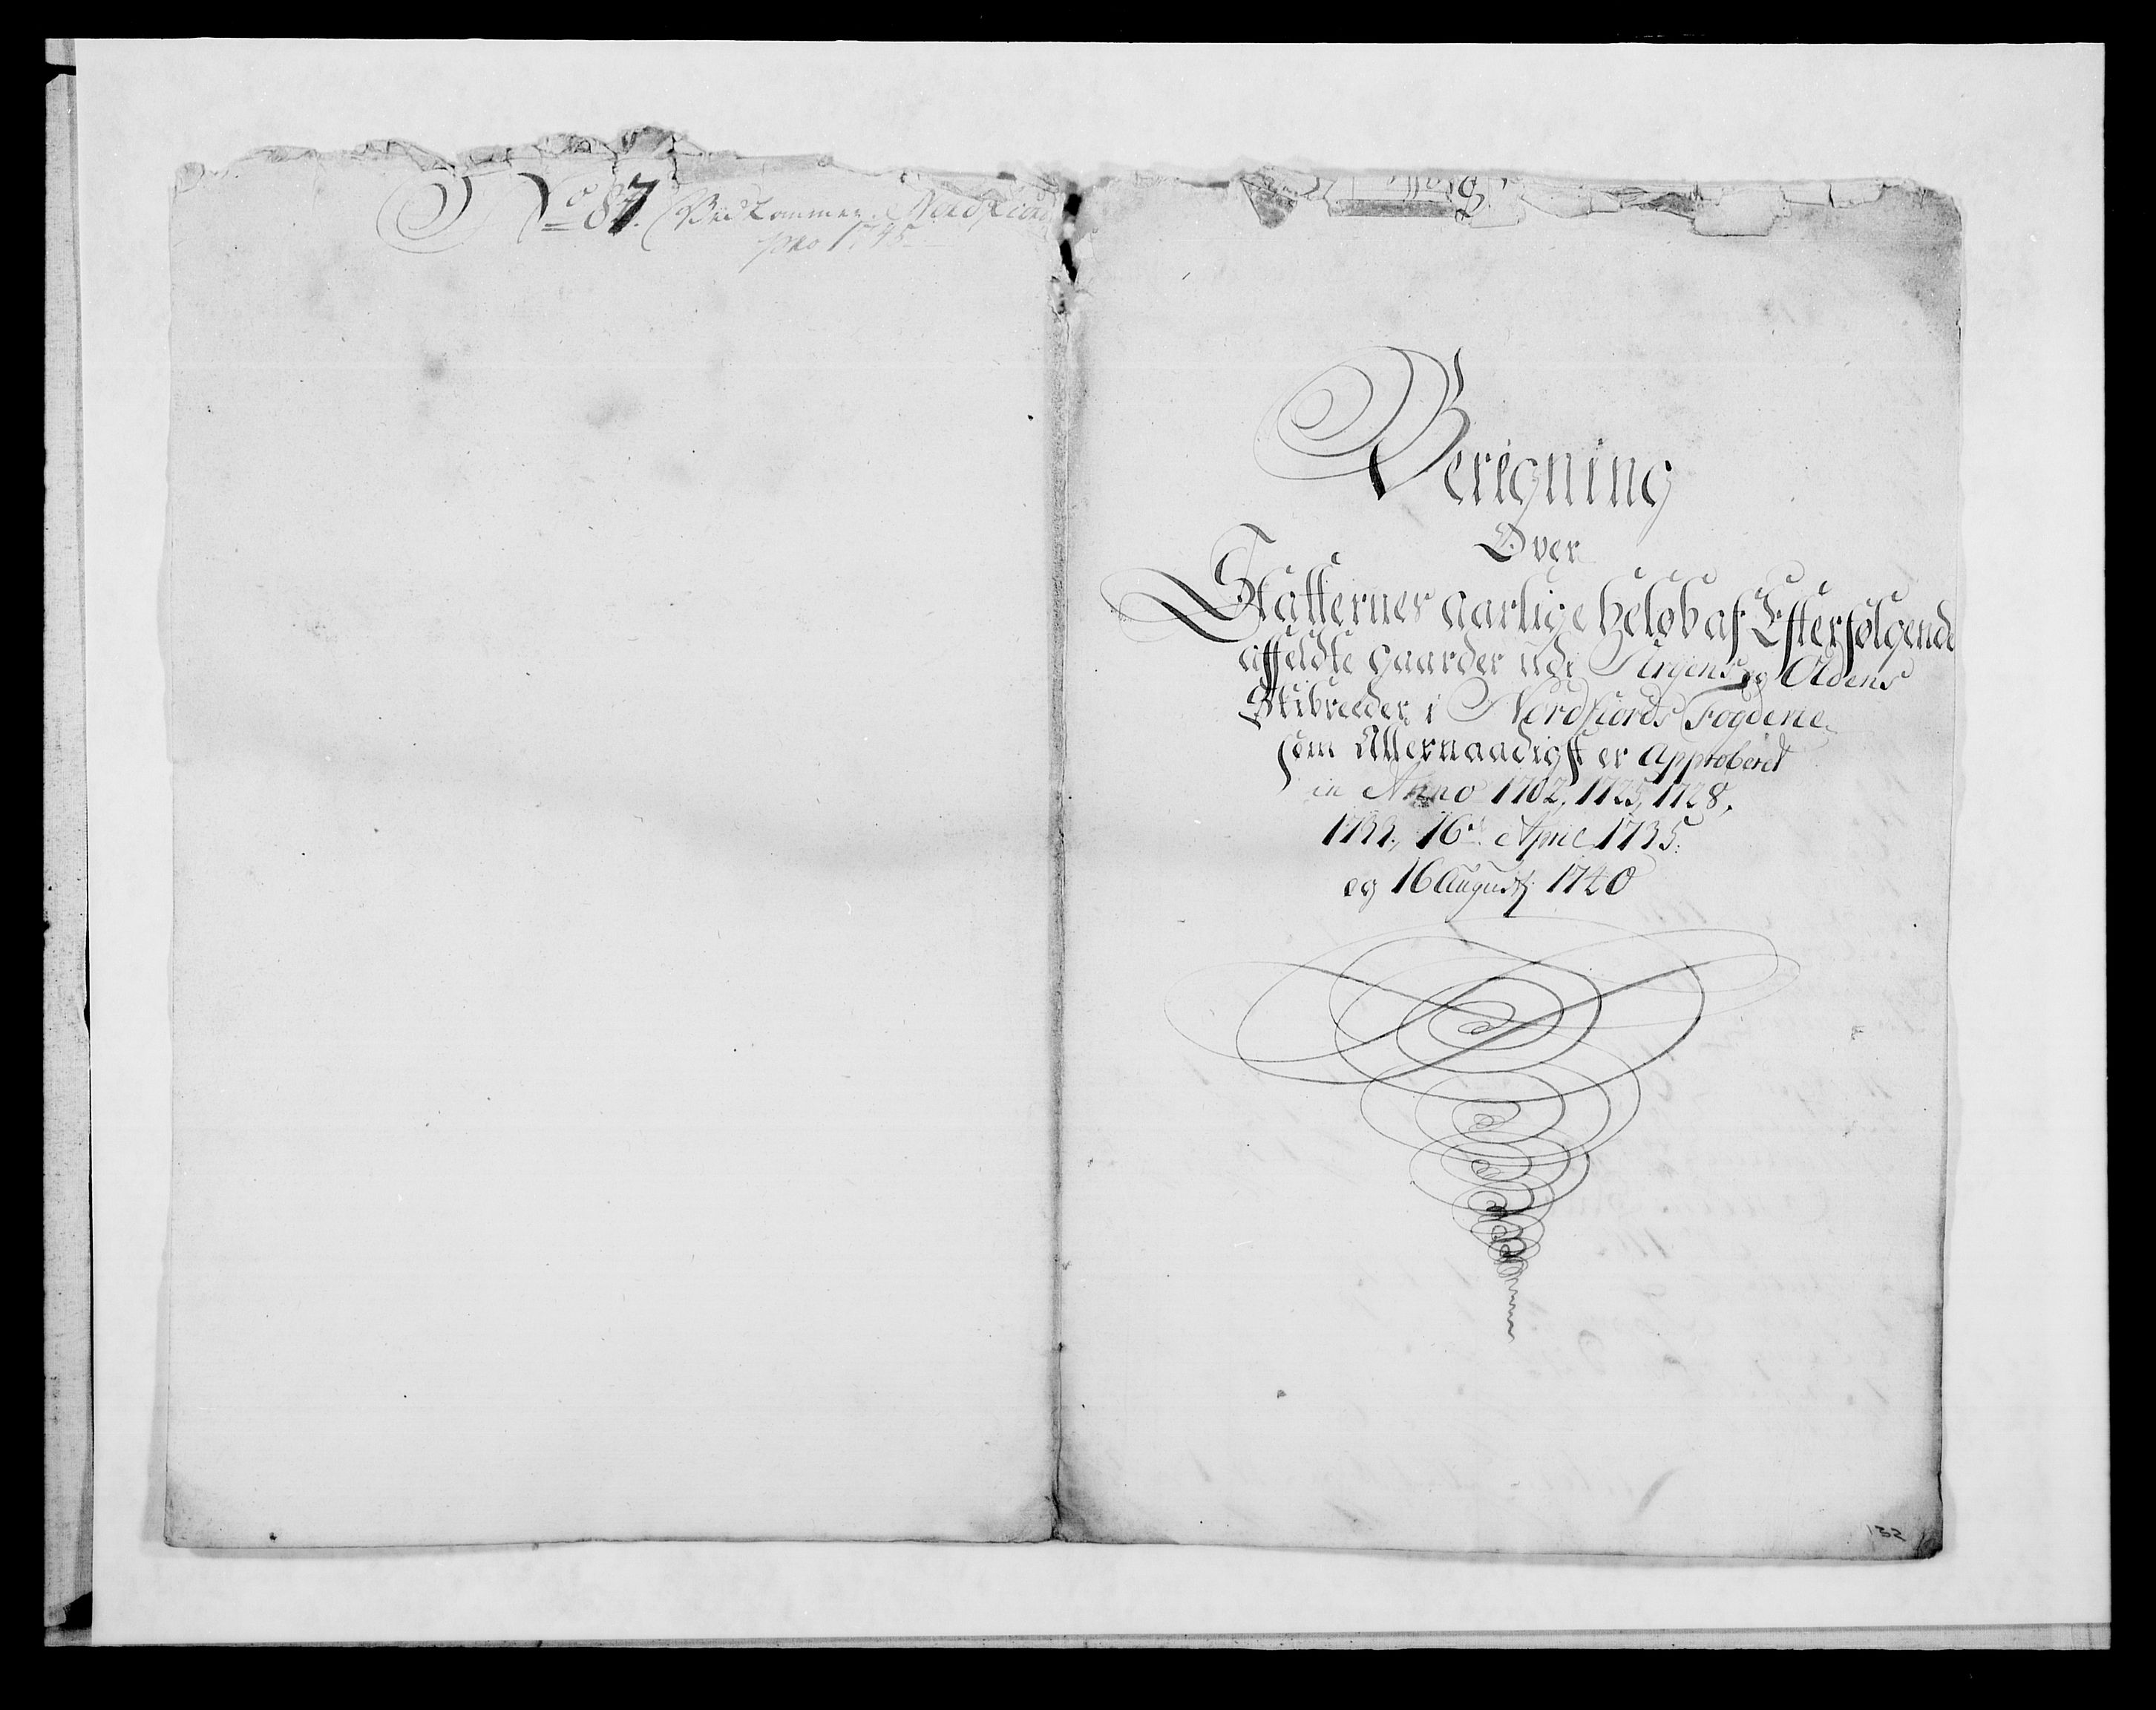 No 87. Vedkommer Nordfiord
pro 1745
Berigning
Over
Skatternes aarlige beløb af Efterfølgende
affældte gaarder udi Yrjens og Oldens
Skibreeder i Nordfiords Fogderie
som Allernaadigst er Approberet
in Anno 1702, 1725, 1728,
1733, 16d April 1735.
og 16 Augustj 1740
132